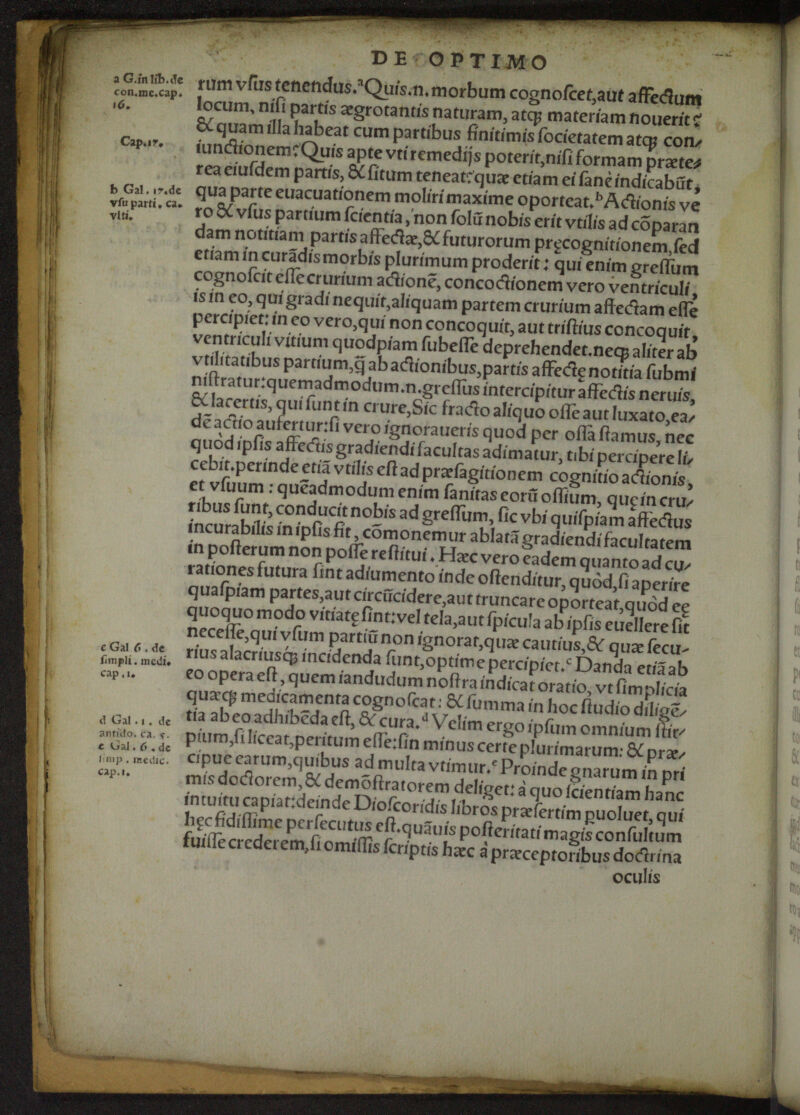 DE OPTIMO
a G.in lib.de
con.me.cap.
16.
Cap.17.
b Gal. 17.de
vsu parti. ca.
vlti.
c Gal 6 . de
simpli. medi.
cap . 1.
d Gal . 1 . de
antido. ca. 5.
e Gal . 6 . de
simp . medic.
cap.1.
rum vſus tenendus.ᵃQuis.n.morbum cognoſcet,aut affectum
locum, niſi partis ægrotantis naturam, atq; materiam nouerit?
& quam illa habeat cum partibus finitimis ſocietatem atq; con/
iunctionem? Quis apte vti remedijs poterit,niſi formam præte/
rea eiuſdem partis, & ſitum teneat?quæ etiam ei ſanè indicabũt,
qua parte euacuationem moliri maxime oporteat.ᵇActionis ve
ro & vſus partium ſcientia, non ſolũ nobis erit vtilis ad cõparan
dam notitiam partis affectæ,& futurorum pręcognitionem,ſed
etiam in curãdis morbis plurimum proderit: qui enim greſſum
cognoſcit eſſe crurium actionẽ, concoctionem vero ventriculi,
is in eo, qui gradi nequit,aliquam partem crurium affectam eſſe
percipiet: in eo vero,qui non concoquit, aut triſtius concoquit,
ventriculi vitium quodpiam ſubeſſe deprehendet.neq; aliter ab
vtilitatibus partium,q̃ ab actionibus,partis affectę notitia ſubmi
niſtratur:quemadmodum.n.greſſus intercipitur affectis neruis,
& lacertis, qui ſunt in crure,Sic fracto aliquo oſſe aut luxato,ea/
dẽ actio aufertur:ſi vero ignoraueris quod per oſſa ſtamus, nec
quòd ipſis affectis gradiendi facultas adimatur, tibi percipere li/
cebit.perinde etiã vtilis eſt ad præſagitionem cognitio actionis,
et vſuum : quẽadmodum enim ſanitas eorũ oſſium, quę in cru/
ribus ſunt, conducit nobis ad greſſum, ſic vbi quiſpiam affectus
incurabilis in ipſis fit, cõmonemur ablatã gradiendi facultatem
in poſterum non poſſe reſtitui. Hæc vero eadem quanto ad cu/
rationes futura ſint adiumento inde oſtenditur, quòd,ſi aperire
quaſpiam partes,aut circũcidere,aut truncare oporteat,quòd ee
quoquo modo vitiatę ſint:vel tela,aut ſpicula ab ipſis euellere ſit
neceſſe,qui vſum partiũ non ignorat,quæ cautius,& quæ ſecu-
rius alacriusq; incidenda ſunt,optime percipiet.ᶜ Danda etiã ab
eo opera eſt, quem iandudum noſtra indicat oratio, vt ſimplicia
quæq; medicamenta cognoſcat: & ſumma in hoc ſtudio diligẽ/
tia ab eo adhibẽda eſt, & cura.ᵈ Velim ergo ipſum omnium ſtir/
pium,ſi liceat,peritum eſſe:ſin minus certe plurimarum: & præ/
cipue earum,quibus ad multa vtimur.ᵉ Proinde gnarum in pri
mis doctorem,& demõſtratorem deliget: à quo ſcientiam hanc
intuitu capiat:deinde Dioſcoridis libros præſertim euoluet, qui
hęc fidiſſime perſecutus eſt.quãuis poſteritati magis conſultum
fuiſſe crederem,ſi omiſſis ſcriptis hæc à præceptoribus doctrina
oculis